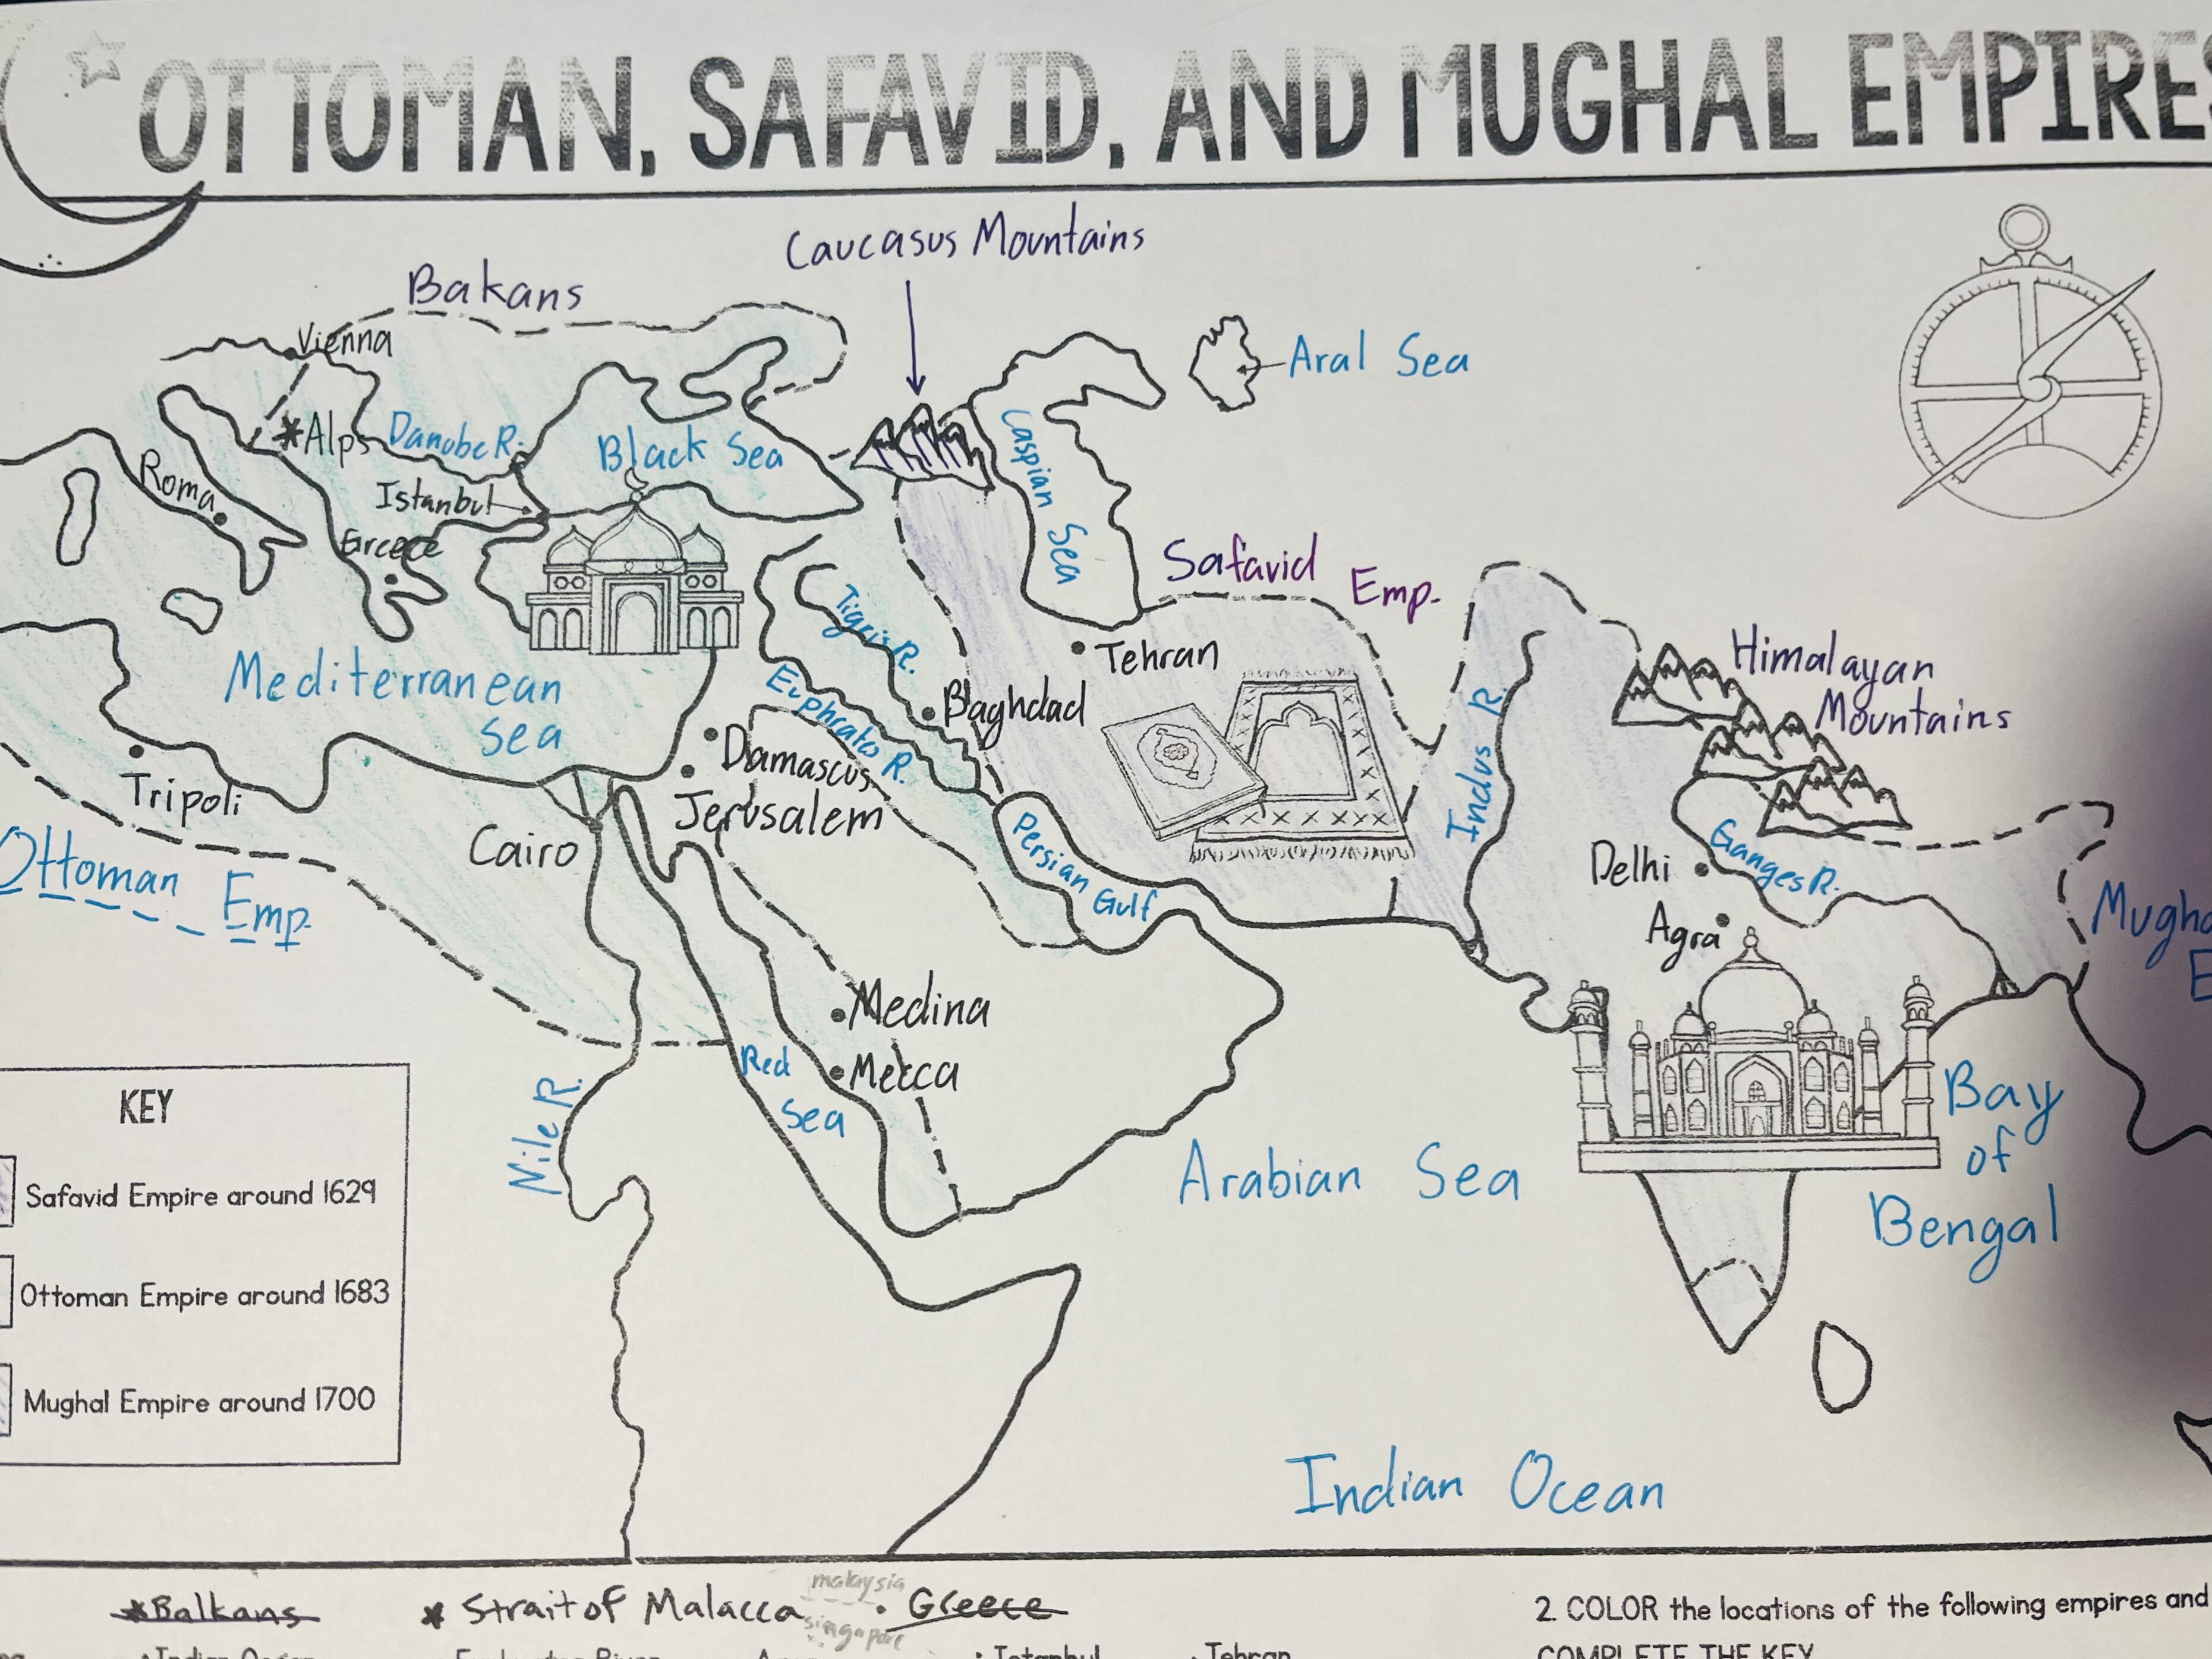 OTTOMAN, SAFAVID, AND MUGHAL EMPIRES
Caucasus Mountains
Bakans
Vienna
Aral Sea
*Alps
Danube R.
Black Sea
Caspian
Sea
Roma
Istanbul
Greece
Safavid
Emp.
Tigris R.
Tehran
Himalayan
Mountains
Mediterranean
Sea
Euphrates R.
Baghdad
Indus R.
Damascus
Jerusalem
Tripoli
Cairo
Persian
Gulf
Delhi
Ganges R.
Ottoman Emp.
Agra
Medina
Mecca
Red
Sea
Nile R.
Arabian Sea
Bay
of
Bengal
KEY
Safavid Empire around 1629
Ottoman Empire around 1683
Mughal Empire around 1700
Indian Ocean
*Balkans
* Strait of Malacca
malaysia
singapore
• Greece
2. COLOR the locations of the following empires and
COMPLETE THE KEY
• Indian Ocean
• Istanbul
• Tehran